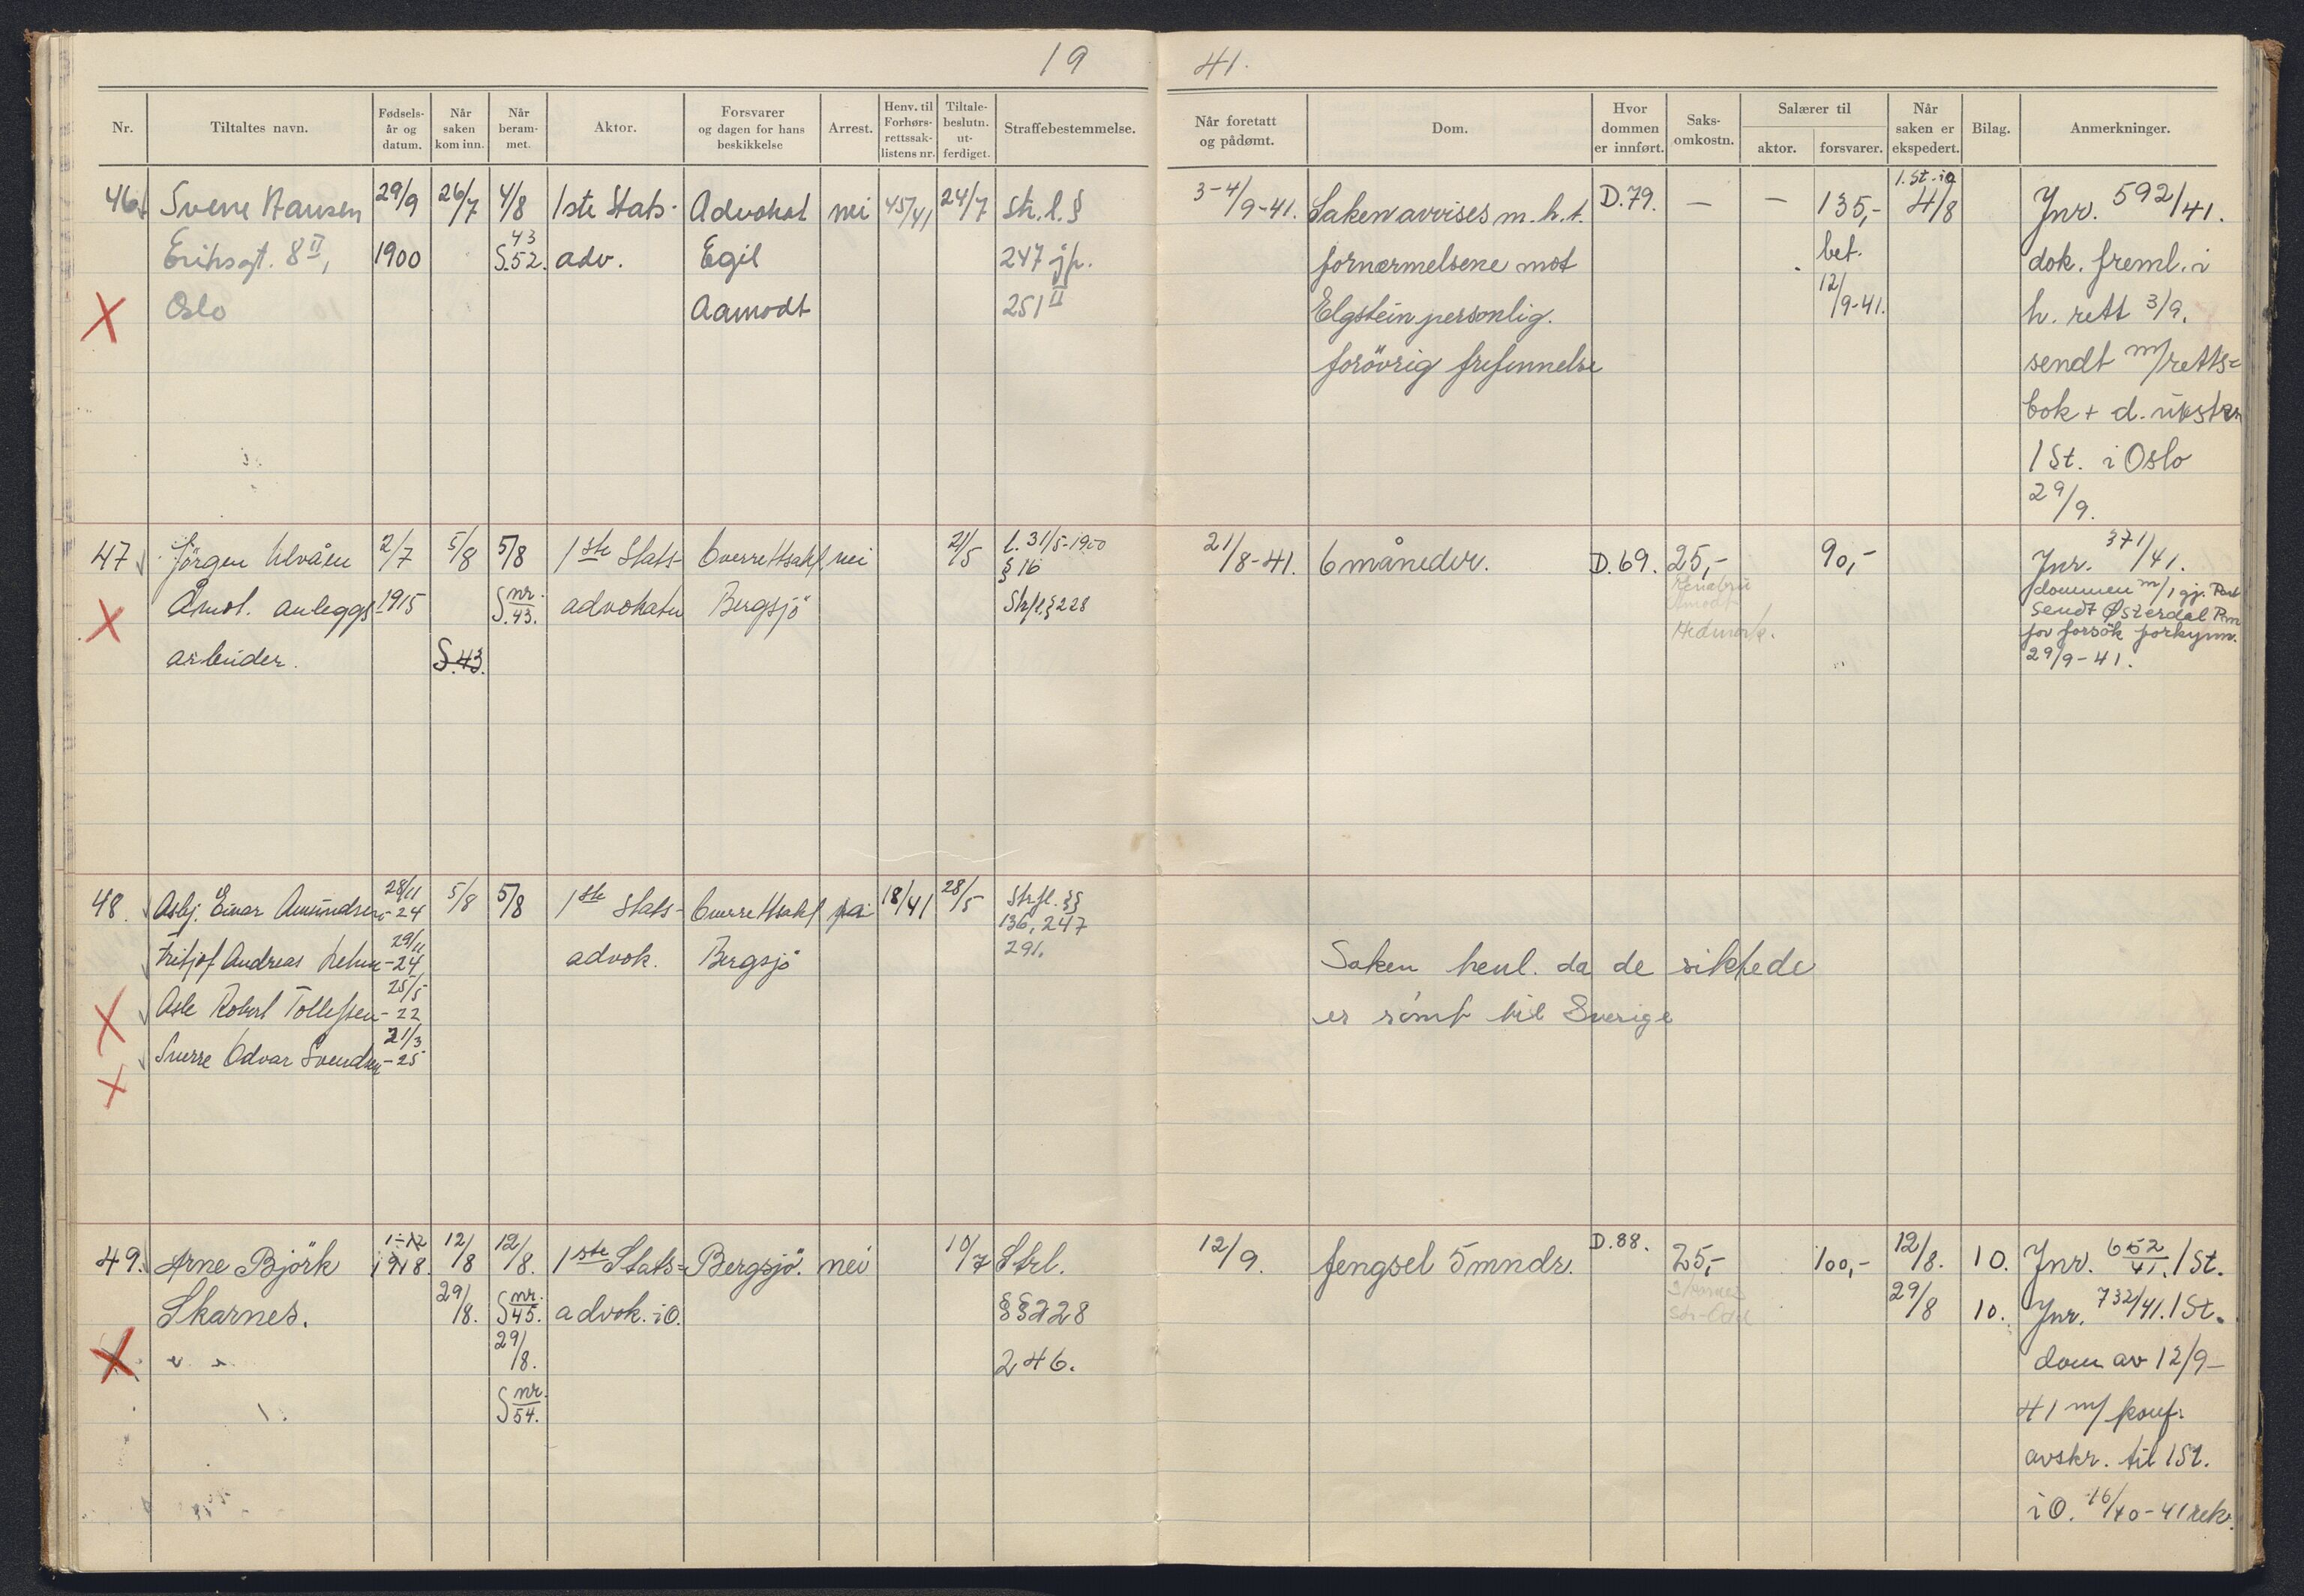 19 41.
Nr. Tiltaltes navn. Fødsels- år og datum. Når saken kom inn. Når beram- met. Aktor. Forsvarer og dagen for hans beskikkelse Arrest. Henv. til Forhørs- rettssak- listens nr. Tiltale- beslutn. ut- ferdiget. Straffebestemmelse. Når foretatt og pådømt. Dom. Hvor dommen er innført. Saks- omkostn. Salærer til aktor. forsvarer. Når saken er ekspedert. Bilag. Anmerkninger.
46 Sverre Hansen 29/9 26/7 4/8 1ste Stats- Advokat nei 45/41 24/7 Str. l. § 3-4/9-41. Saken avvises m.h.t. D.79. — — 135,- 1. St. i O 4/8 Jnr. 592/41.
Eriksgt. 8 II, 1900 43 S.52. adv. Egil 247 jfr. fornærmelsene mot bet. dok. freml. i
Oslo Aamodt 251 II Elgstein personlig. 12/9-41. h. rett 3/9.
forövrig frifinnelse sendt m/retts-
bok + d. utskr.
1 St. i Oslo
29/9.
47 Jörgen Ulvåen 2/7 5/8 5/8 1ste Stats- Overrettsakf. nei 21/5 l. 31/5-1900 21/8-41. 6 måneder. D.69. 25,- 90,- Jnr. 371/41.
§ 16
Åmot. anleggs 1915 S nr. 43. advokaten Bergsjö Strfl. § 228 dommen m/1 gj. Part
sendt Østerdal Pm
arbeider. S.43. Hedmark. for forsök forkynn.
29/9-41.
48. Asbj. Einar Amundsen 28/11 -24 5/8 5/8 1ste Stats- Overrettsakf ja 18/41 28/5 Strfl. §§
136, 247
Fritjof Andreas Lehne 29/11 -24 advok. Bergsjö 291. Saken henl. da de siktede
Asle Robert Tollefsen 25/5 -22 er römt til Sverige
Sverre Odvar Svendsen 21/3 -25
49. Arne Björk 1-12 1918. 12/8 12/8. 1ste Stats- Bergsjö. nei 10/7 Strl. 12/9. fengsel 5 mndr. D.88. 25,- 100,- 12/8. 10. Jnr. 652/41. 1 St.
Skarnes. 29/8. S nr. 45. advok. i O. §§ 228 Skarnes 29/8 10. Jnr. 732/41. 1 St.
29/8. 246. dom av 12/9-
S nr. 54. 41 m/ konf.
avskr. til 1 St.
i O. 16/10-41 rek.